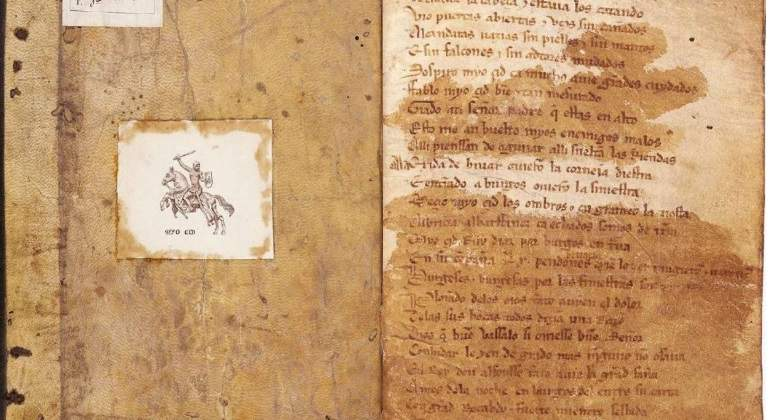 MYO CID
la cabeça y estaua los catando
Vio puertas abiertas e vços sin cañados
Alcandaras uazias sin pielles e sin mantos
E sin falcones e sin adtores mudados
Sospiro myo çid ca mucho auie grãdes cuydados
Fablo myo çid biẽ e tan mesurado
Grado ati señor padre q̃ estas en alto
Esto me an buelto myos enemigos malos
Alli pienssan de aguijar alli sueltã las Riendas
Ala exida de biuar ouierõ la corneia diestra
E entrãdo a burgos ouierõ la siniestra
Meçio myo çid los ombros e en grameo la tiesta
Albricia albarffanez ca echados somos de tr̃ra
Myo çid Ruy diaz por burgos en traua
En su conpaña .Lx. pendones
Burgeses e burgesas por las finiestras son
Plorando delos oios tãto auyen el dolor
Delas sus bocas todos dizian una Razõ
Dios q̃ buẽ vassalo si ouiesse buẽ Señor
Conbidar le yen de grado mas ninguno no osaua
El Rey don alfonsso tãto auie la grãd saña
Antes dela noche en burgos del entro su carta
Con grãd Recabdo e fuerte mientre sellada